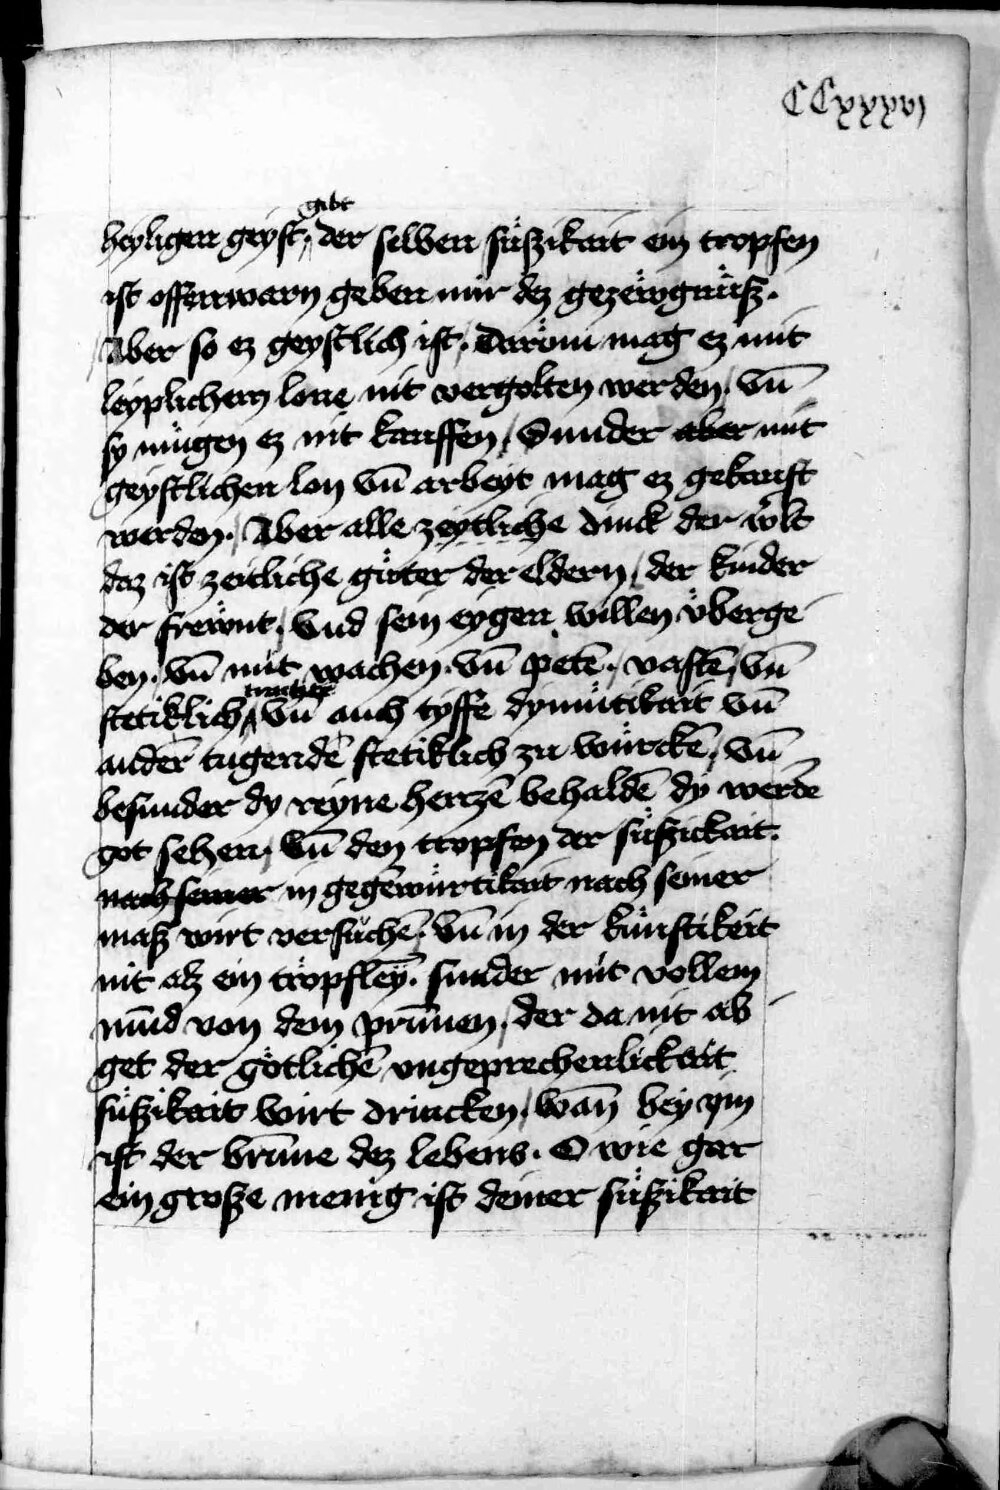 CCxxxvj
gibt
heyligen geyst, der selben süszikait ein tropfen
ist offenwarn geben mir dez gezewgnüsz.
Aber so ez geystlich ist. Darom mag ez mit
leyplichem lone nit vergolten werden, vn̄
sy mügen ez nit kauffen, Sunder aber mit
geystlichen lon vn̄ arbeyt mag ez gekauft
werden. Aber alle zeytliche dinck der welt
daz ist zeitliche güter der eldern, der kinder
der frewnt, vnd sein eygen willen überge
ben. vn̄ mit wachen. vn̄ petē, vastē, vn̄
stetiklich, vn̄ auch tyffe dymütikait vn̄
anderē tugendē stetiklich zu würckē, vn̄
besunder dy reyne hertzē behaldē dy werdē
got sehen, vn̄ den tropfen der süszickait.
nach seiner in gegēwürtikait nach seiner
masz wirt versuchē. vn̄ in der künftikeit
nit alz ein tröpfley. sunder mit vollem
mūd von dem prūnen, der da nit ab
get der götlichē vngeprechenlickait
süszikait wirt drincken, wan̄ bey ym
ist der brūne dez lebens. O wie gar
ein grosze menig ist deiner süszikait